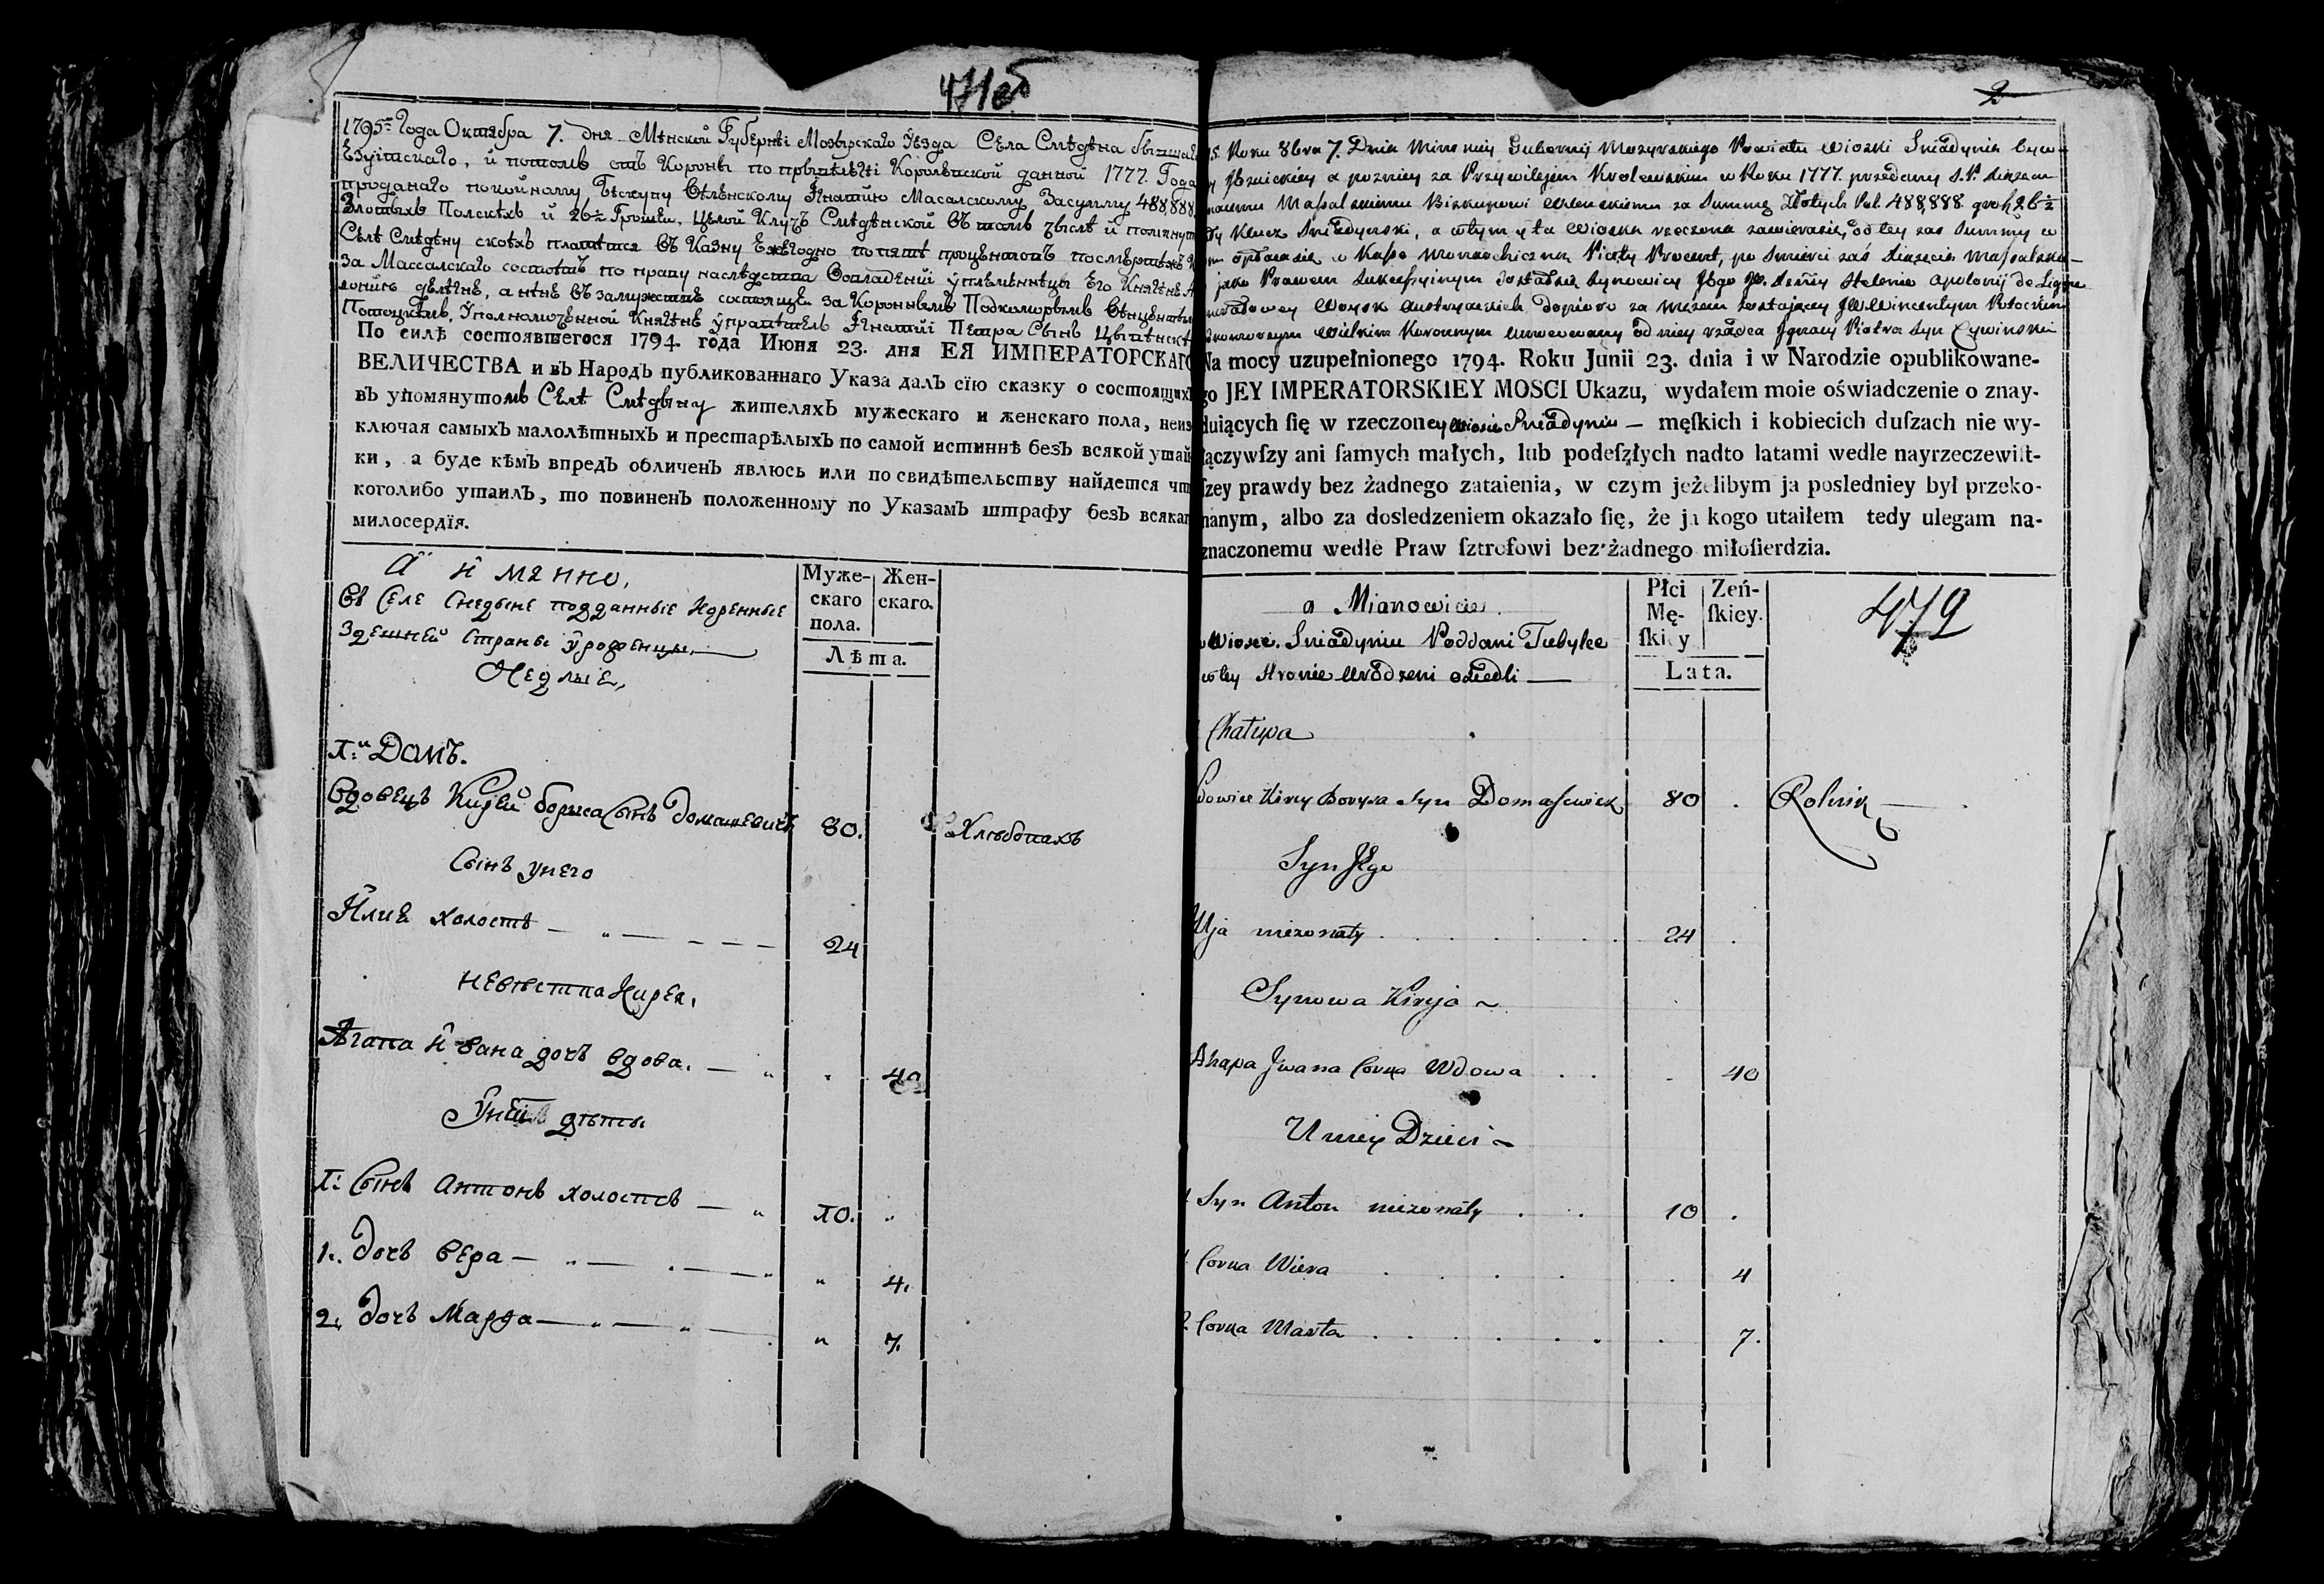 471об
1795го Года Октября 7. дня Мѣнской Губернѣи Мозырскаго Уѣзда Села Смѣдѣна бывшаго
Езуитскаго, и потомъ отъ Короны по прывѣлѣгѣи Королевской данной 1777. Года
проданаго покойному Бѣскупу Вѣленскому Игнатѣю Масалскому За сумму 488,888
Злотыхъ Полскѣхъ и 26½ Грошей. Цѣлой Ключъ Смѣдѣнской Въ томъ чыслѣ и помянутомъ
Сѣлѣ Смѣдѣну скотхъ платѣтся Въ Казну Ежѣгодно по пятѣ процентовъ посмѣртѣжъ
За Массалскаго состоѣтъ по праву наслѣдства Воаладенѣи уплѣмѣннѣцы Его Княгѣнѣ
дѣлѣгнѣ, а нѣнѣ Въ замужествѣ состоящце За Короннымъ Подкоморымъ Вѣнцентым
Потоцкѣмъ. Уполномоченной Княгѣнѣ управѣтель Игнатѣй Петра Сынъ Цывѣнскѣ
По силѣ состоявшегося 1794. года Июня 23. дня ЕЯ ИМПЕРАТОРСКАГО
ВЕЛИЧЕСТВА и въ Народъ публикованнаго Указа далъ сїю сказку о состоящихъ
въ упомянутомъ Селѣ Смѣдыну жителяхъ мужескаго и женскаго пола, неиз
ключая самыхъ малолѣтныхъ и престарѣлыхъ по самой истиннѣ безъ всякой утай
ки, а буде кѣмъ впредъ обличенъ явлюсь или по свидѣтельству найдется что
коголибо утаилъ, то повиненъ положенному по Указамъ штрафу безъ всякаго
милосердїя.
А имянно,
Въ Селе Снедыне подданные Коренные
Здешней страны Уроженцы
Оседлые,
Муже-
скаго
пола.
Жен-
скаго.
Лѣта.
1.й Домъ.
Вдовецъ Кирей бориса Сынъ Домашевичъ 80. Хлѣбопахъ
Сынъ у него
Илия холостъ 24
невѣстка Кирея.
Агапа Ивана дочъ вдова. 40
У ней дѣти
1: Сынъ Антонъ холостъ 10.
1. дочъ Вера 4.
2. дочъ Марѳа 7.
2
95. Roku 8bra 7. Dnia Minskiey Gubernij Mozyrskiego Powiatu Wioski Sniadynia byw-
y Jezuickiey a pozniey za Przywilejem Krolewskim w Roku 1777. przedaney S.P. Xiązęciu
Ignacemu Massalskiemu Biskupowi Wilenskiemu za Summę Złotych Pol. 488,888 groszy 26½
ły Klucz Sniadynski, a wtym y ta Wioska rzeczona zawierasie, od tey zas Summy w
opłacasie w Kassę Monarchiczną Piąty Procent, po Smierci zaś Xiązęcia Massalskie-
jako Prawem Sukcessyinym dostałasie Synowicy Jego JO. Xięznie Helenie Apolonij de Ligne
Woysk Austryackich dopiero za męzem zostającey JW Wincentym Potockim
Podkomorzym Wielkim Koronnym umocowany od niey rządca Jgnacy Piotra Syn Cywinski
Na mocy uzupełnionego 1794. Roku Junii 23. dnia i w Narodzie opublikowane-
go JEY IMPERATORSKIEY MOSCI Ukazu, wydałem moie oświadczenie o znay-
duiących ſię w rzeczoney Wiosce Sniadyniu — męſkich i kobiecich duſzach nie wy-
łączywſzy ani ſamych małych, lub podeſzłych nadto latami wedle nayrzeczewiſt-
ſzey prawdy bez żadnego zataienia, w czym jeżelibym ja posledniey był przeko-
nanym, albo za dosledzeniem okazało ſię, że ja kogo utaiłem tedy ulegam na-
znaczonemu wedłe Praw ſztrofowi bez żadnego miłoſierdzia.
a Mianowicie.
w Wiosce Sniadyniu Poddani Tubylce
w tey stronie Urodzeni osiedli —
Płci
Mę-
ſkiey
Zeń-
ſkiey.
Lata.
472
Chałupa
Wdowiec Kirey Borysa Syn Domaszewicz 80 . Rolnik
Syn Jego
Ilja niezonaty 24 .
Synowa Kireja ~
Ahapa Jwana Corka Wdowa . 40
U niey Dzieci ~
1 Syn Anton niezonaty 10 .
1 Corka Wiera . 4
2. Corka Marta . 7.